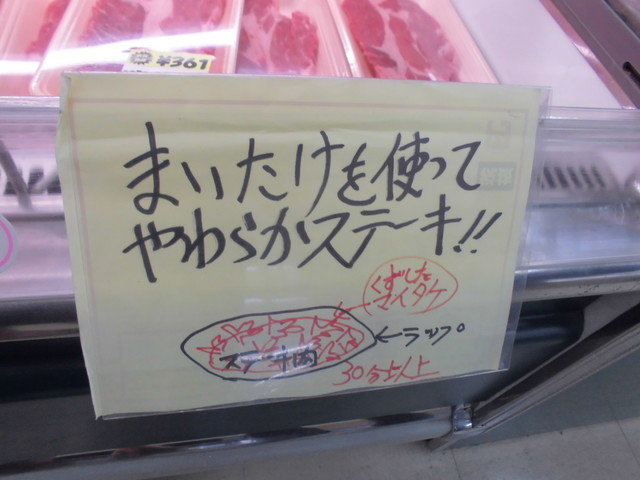 ¥361
まいたけを使って
やわらかステーキ!!
くずした
マイタケ
ステーキ肉
←ラップ
30分以上